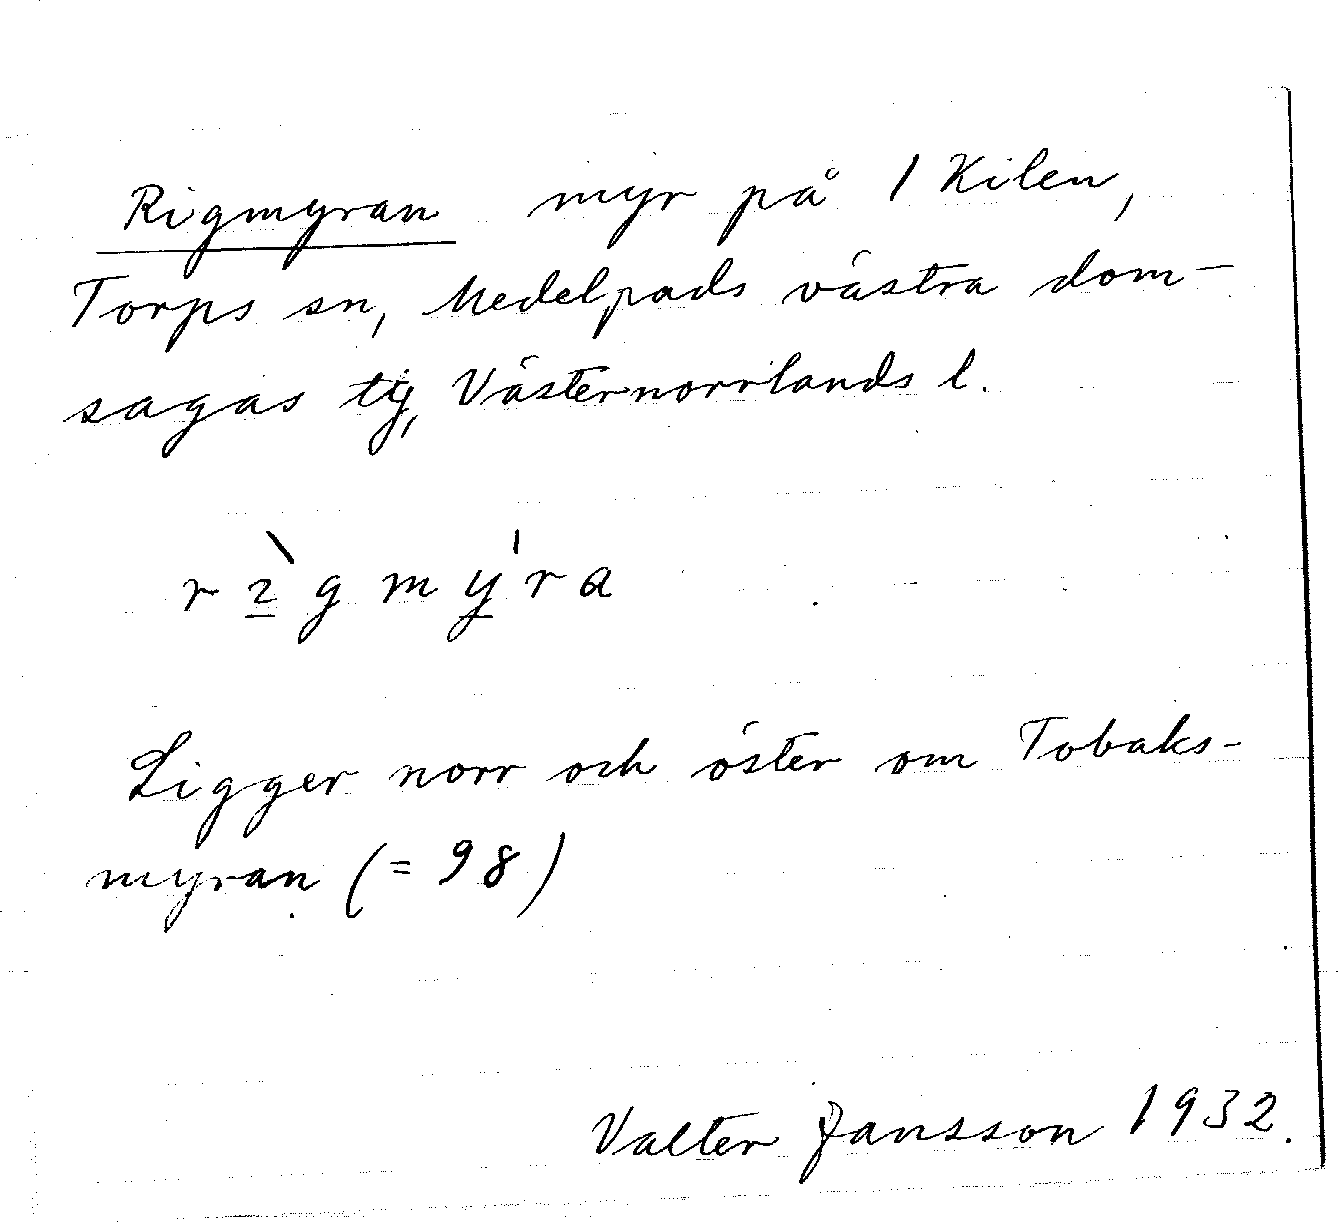 Rigmyran myr på 1 Kilen,
Torps sn, Medelpads västra dom-
sagas tg, Västernorrlands l.
rı̀gmy̍ra
Ligger norr och öster om Tobaks-
myran (= 98)
Valter Jansson 1932.